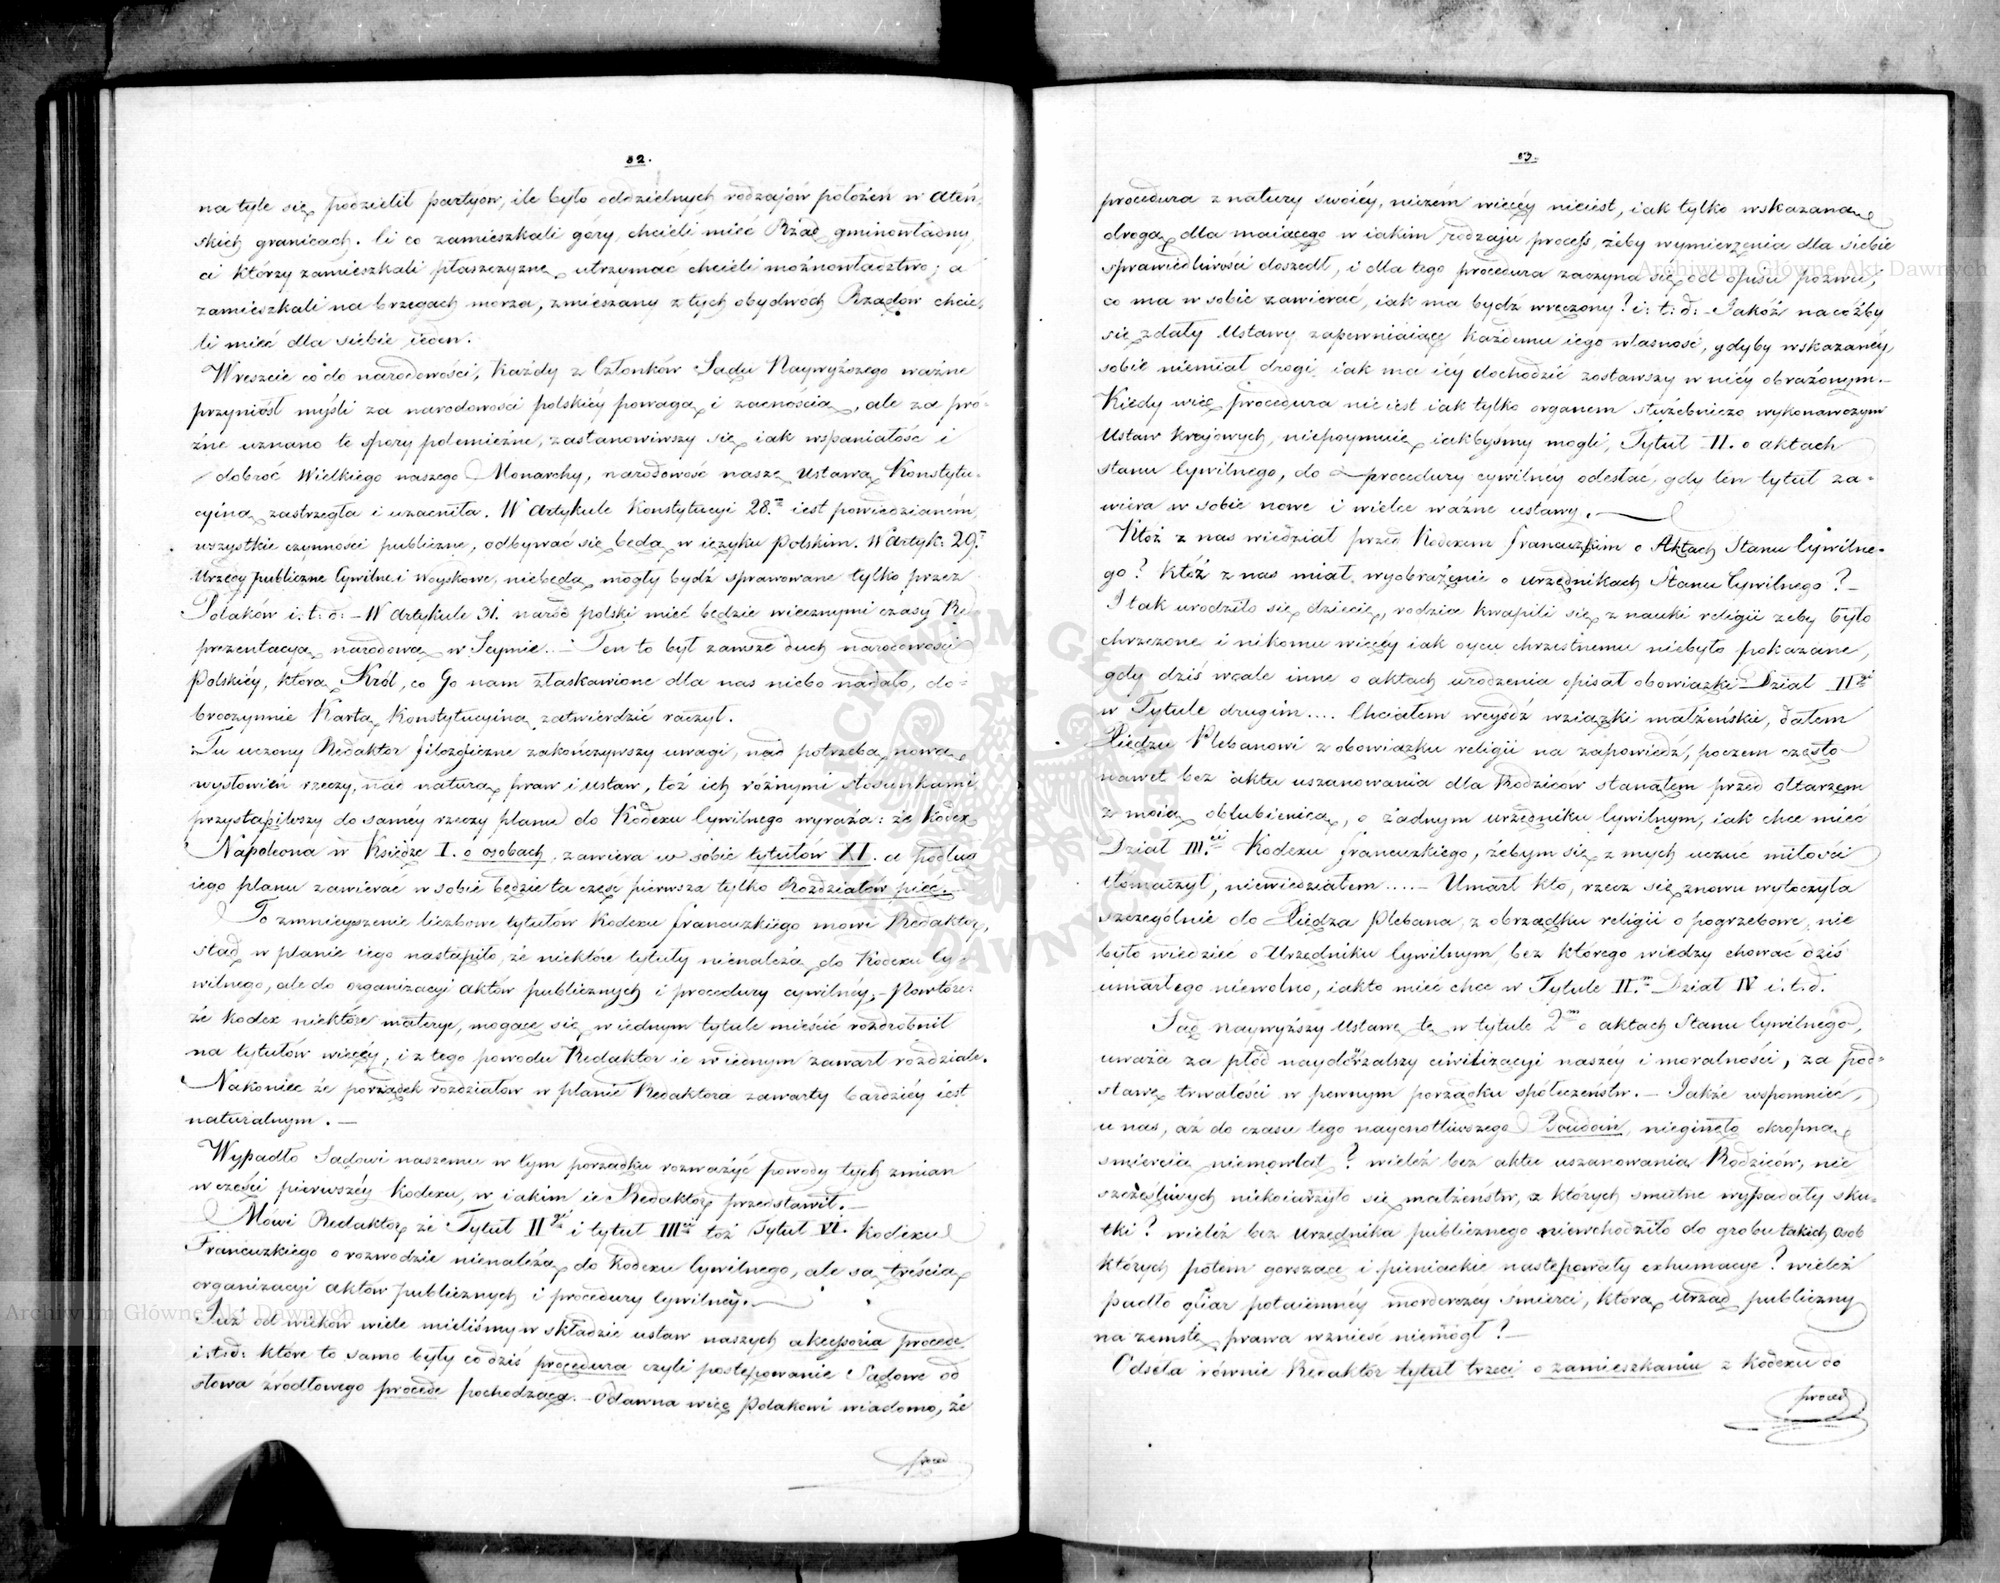 82.
na tyle się podzielił partyów, ile było oddzielnych rodzajów położeń w Ateń-
skich granicach. Ci co zamieszkali góry, chcieli mieć Rząd gminowładny,
a którzy zamieszkali płaszczyznę, utrzymać chcieli możnowładztwo; a
zamieszkali na brzegach morza, zmieszany z tych obydwóch Rządów chcie-
li mieć dla siebie ieden.
Wreszcie co do narodowości, Każdy z Członków Sądu Naywyższego ważne
przyniósł myśli za narodowości polskiéy powagą i zacnością, ale za pró-
żne uznano te spory polemiczne, zastanowiwszy się, iak wspaniałość i
dobroć Wielkiego naszego Monarchy, narodowość naszę Ustawą Konstytu-
cyiną zastrzegła i uzacniła. W Artykule Konstytucyi 28.m iest powiedzianém,
wszystkie czynności publiczne, odbywać się będą w ięzyku polskim. W Artyk: 29.m
Urzędy publiczne Cywilne i Woyskowe, niebędą mogły bydź sprawowane tylko przez
Polaków i.t:d: – W Artykule 31. naród polski mieć będzie wiecznymi czasy Re-
prezentacyą narodową w Seymie. – Ten to był zawsze duch narodowości
Polskiéy, którą Król, co Go nam złaskawione dla nas niebo nadało, do-
broczynnie Kartą Konstytucyiną zatwierdzić raczył.
Tu uczony Redaktor filozoficzne zakończywszy uwagi, nad potrzebą nową
wysłowień rzeczy, nad naturą praw i ustaw, toż ich różnymi stosunkami
przystąpiwszy do saméy rzeczy planu do Kodexu Cywilnego wyraża: że Kodex
Napoleona w Księdze I. o osobach, zawiera w sobie tytułów XI. a podług
iego planu zawierać w sobie będzie ta część pierwsza tylko Rozdziałów pięć. –
To zmnieyszenie liczbowe tytułów Kodexu francuzkiego mówi Redaktor,
stąd w planie iego nastąpiło, że niektóre tytuły nienależą do Kodexu Cy-
wilnego, ale do organizacyi aktów publicznych i procedury cywilnéy, – powtóre:
że Kodex niektóre materye, mogące się w iednym tytule mieścić rozdrobnił
na tytułów więcéy; i z tego powodu Redaktor ie w iednym zawarł rozdziale.
Nakoniec że porządek rozdziałów w planie Redaktora zawarty bardziéy iest
naturalnym. –
Wypadło Sądowi naszemu w tym porządku rozważyć powody tych zmian
w części pierwszéy Kodexu, w iakim ie Redaktor przedstawił. –
Mówi Redaktor, że Tytuł II gi i tytuł III ci toż Tytuł VI. Kodexu
Francuzkiego o rozwodzie nienależą do Kodexu Cywilnego, ale są treścią
organizacyi aktów publicznych i procedury Cywilnéy. –
Już od wieków wiele mieliśmy w składzie ustaw naszych akcessoria procede
i.t:d: które to samo były co dziś procedura czyli postępowanie Sądowe od
słowa źródłowego procede pochodzące. – Odawna więc Polakowi wiadomo, że
proced
83.
procedura z natury swoiéy, niczém więcéy nieiest, iak tylko wskazaną
drogą dla maiącego w iakim rodzaju process, żeby wymierzenia dla siebie
sprawiedliwości doszedł, i dla tego procedura zaczyna się od opisu pozwu,
co ma w sobie zawierać, iak ma bydź wręczony? i: t: d: – Jakóż na cóżby
się zdały Ustawy zapewniaiące Każdemu iego własność, gdyby wskazanéy
sobie niemiał drogi iak ma iéy dochodzić zostawszy w niéy obrażonym. –
Kiedy więc procedura nie iest iak tylko organem służebniczo wykonawczym
Ustaw Krajowych, niepoymuię iakbyśmy mogli, Tytuł II. o aktach
stanu Cywilnego, do procedury cywilnéy odesłać, gdy ten tytuł za-
wiera w sobie nowe i wielce ważne ustawy. –
Któż z nas wiedział przed Kodexem francuzkim o Aktach Stanu Cywilne-
go? Któż z nas miał wyobrażenie o urzędnikach Stanu Cywilnego? –
I tak urodziło się dziecię, rodzice kwapili się z nauki religii żeby było
chrzczone i nikomu więcéy iak oycu chrzestnemu niebyło pokazane,
gdy dziś wcale inne o aktach urodzenia opisał obowiązki Dział II gi
w Tytule drugim.... Chciałem weyśdź w związki małżeńskie, dałem
Xiędzu Plebanowi z obowiązku religii na zapowiedź, poczem często
nawet bez aktu uszanowania dla Rodziców stanąłem przed ołtarzem
z moią oblubienicą, o żadnym urzędniku Cywilnym, iak chce mieć
Dział III.ci Kodexu francuzkiego, żebym się z mych uczuć miłości
tłomaczył, niewiedziałem.... – Umarł kto, rzecz się znowu wytoczyła
szczególnie do Xiędza Plebana, z obrządku religii o pogrzebowe, nie
było wiedzieć o Urzędniku Cywilnym, bez którego wiedzy chować dziś
umarłego niewolno, iakto mieć chce w Tytule II.m Dział IV i.t.d.
Sąd Naywyższy Ustawę tę w tytule 2m o aktach Stanu Cywilnego,
uważa za płód naydóyrzalszy cywilizacyi naszéy i moralności, za pod-
stawę trwałości w pewnym porządku społeczeństw. – Jakże wspomnieć,
u nas, aż do czasu tego naycnotliwszego Boudoin, nieginęło okropną
śmiercią niemowląt? wieleż bez aktu uszanowania Rodziców, nie
szczęśliwych niekoiarzyło się małżeństw, z których smutne wypadały sku-
tki? wieleż bez Urzędnika publicznego niewchodziło do grobu takich osob
których potem gorszące i pieniackie następowały exhumacye? wieleż
padło ofiar potaiemnéy morderczéy śmierci, którą Urząd publiczny
na zemstę prawa wznieść niemógł? –
Odséła równie Redaktor tytuł trzeci o zamieszkaniu z Kodexu do
proced
Archiwum Główne Akt Dawnych
Archiwum Główne Akt Dawnych
ARCHIWUM GŁÓWNE AKT DAWNYCH